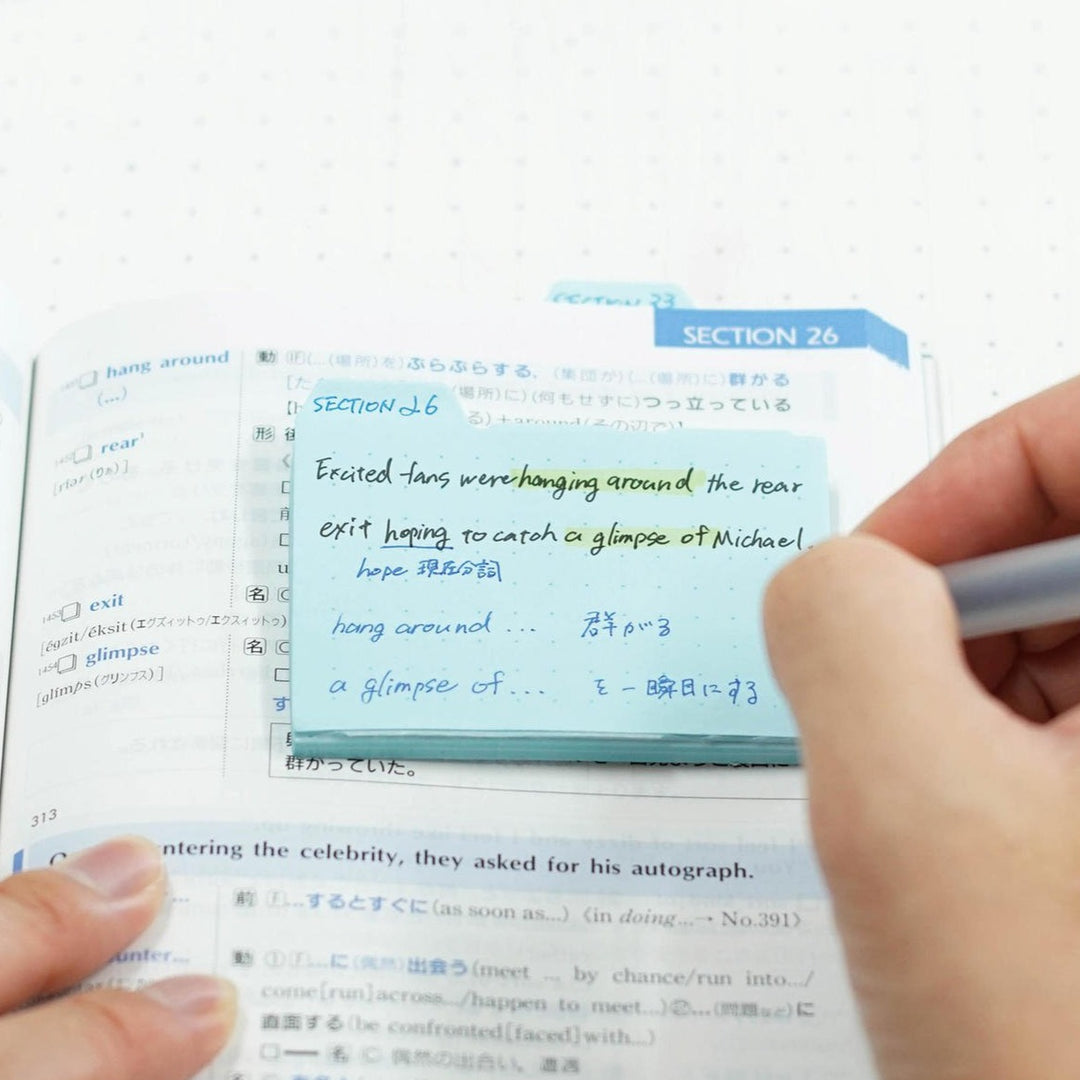 SECTION 23
SECTION 26
hang around
(...)
動 (…(場所)を)ぶらぶらする, (集団が)(…(場所)に)群がる
(場所)に)(何もせずに)つっ立っている
る)+around(その辺で)]
rear¹
形
[ríər(りぁ)]
1453 exit
名
[égzit/éksit(エグズィットゥ/エクスィットゥ)]
1454 glimpse
名
[glímps(グリンプス)]
SECTION 26
Excited fans were hanging around the rear
exit hoping to catch a glimpse of Michael.
hope 現在分詞
hang around ... 群がる
a glimpse of... を一瞬目にする
群がっていた。
313
ntering the celebrity, they asked for his autograph.
前 …するとすぐに(as soon as...) 〈in doing...→ No.391〉
unter...
動 ① …に(偶然)出会う(meet ... by chance/run into.../
come[run]across.../happen to meet...)②…(問題など)に
直面する(be confronted[faced]with...)
名 Ⓒ 偶然の出会い, 遭遇